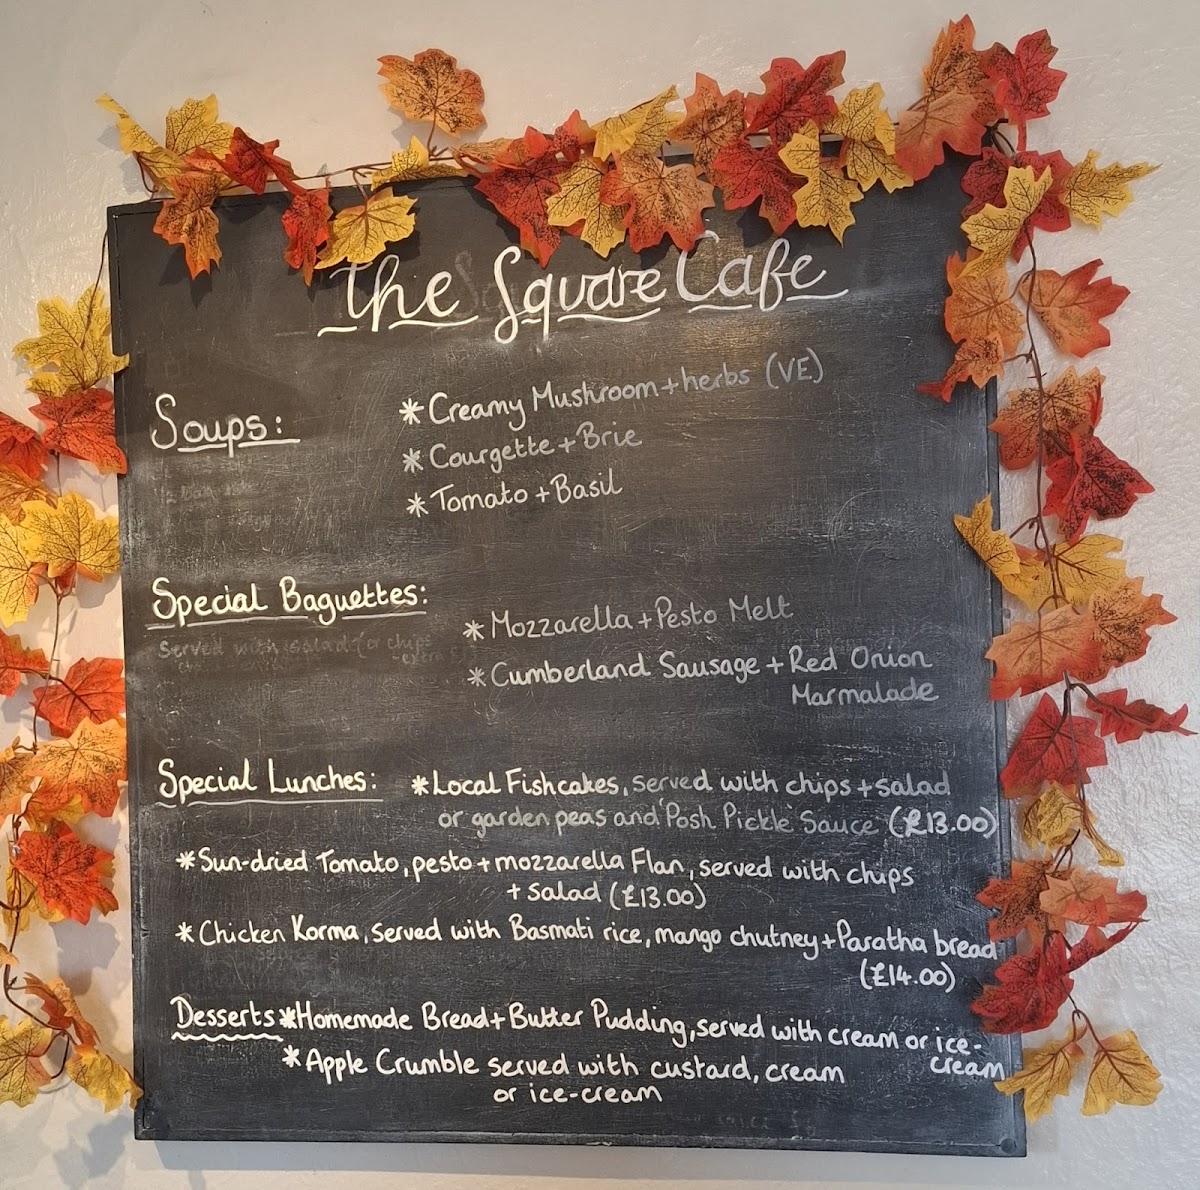 The Square Cafe
Soups:
* Creamy Mushroom + herbs (VE)
* Courgette + Brie
* Tomato + Basil
Special Baguettes:
Served with salad (or chips
- extra
* Mozzarella + Pesto Melt
* Cumberland Sausage + Red Onion
Marmalade
Special Lunches: * Local Fishcakes, served with chips + salad
or garden peas and 'Posh Pickle' Sauce (£13.00)
* Sun-dried Tomato, pesto + mozzarella Flan, served with chips
+ salad (£13.00)
* Chicken Korma, served with Basmati rice, mango chutney + Paratha bread
(£14.00)
Desserts * Homemade Bread + Butter Pudding, served with cream or ice-
cream
* Apple Crumble served with custard, cream
or ice-cream